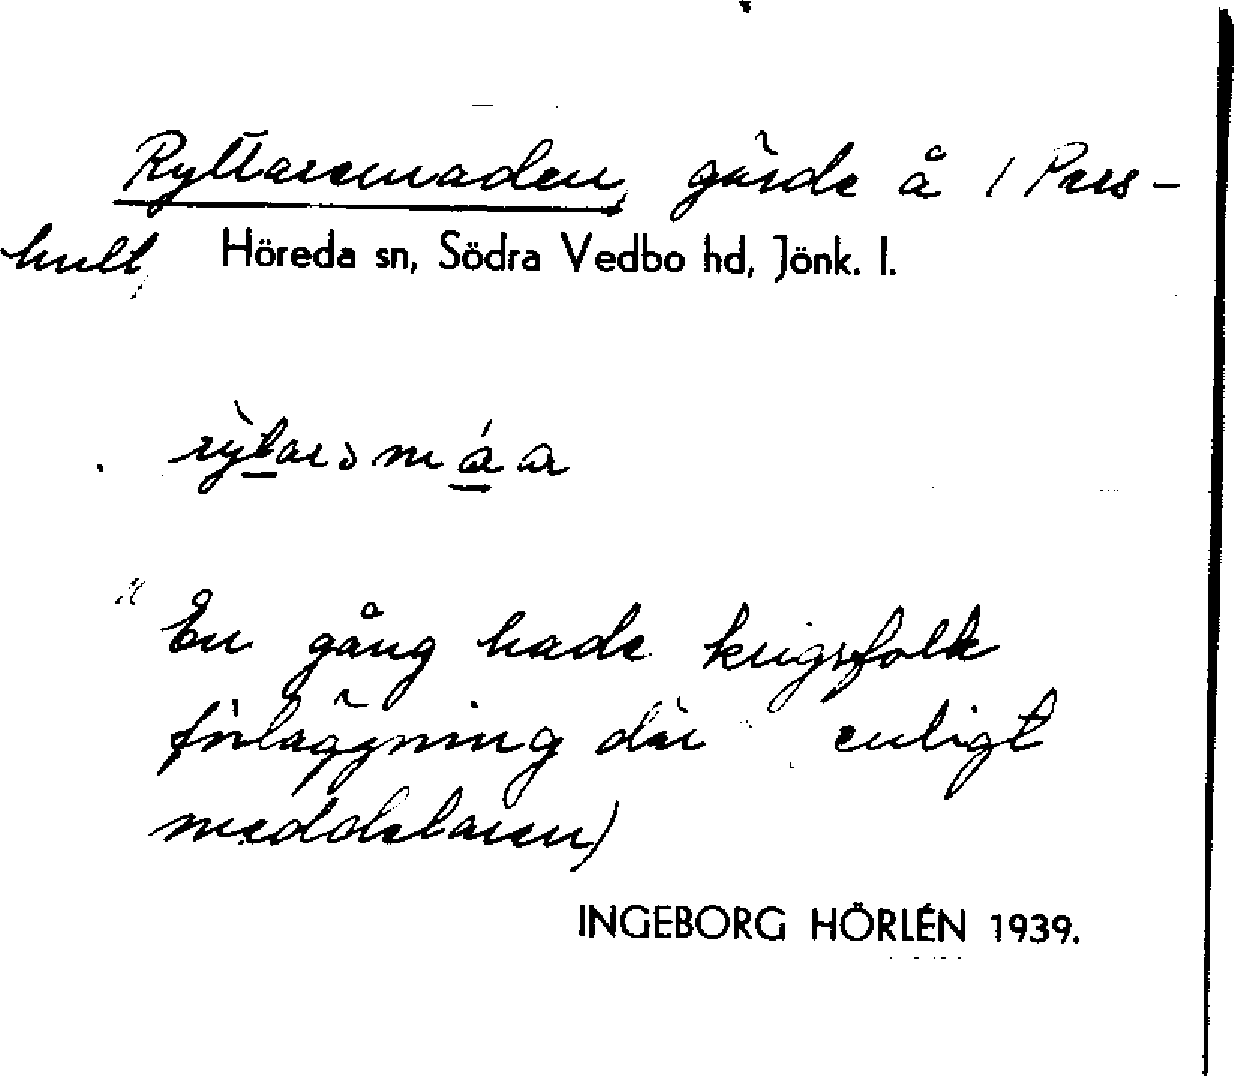 Ryttaremaden, gärde å 1 Pers-
hult, Höreda sn, Södra Vedbo hd, Jönk. l.
"En gång hade krigsfolk
förläggning där" enligt
meddelaren)
INGEBORG HÖRLÉN 1939.